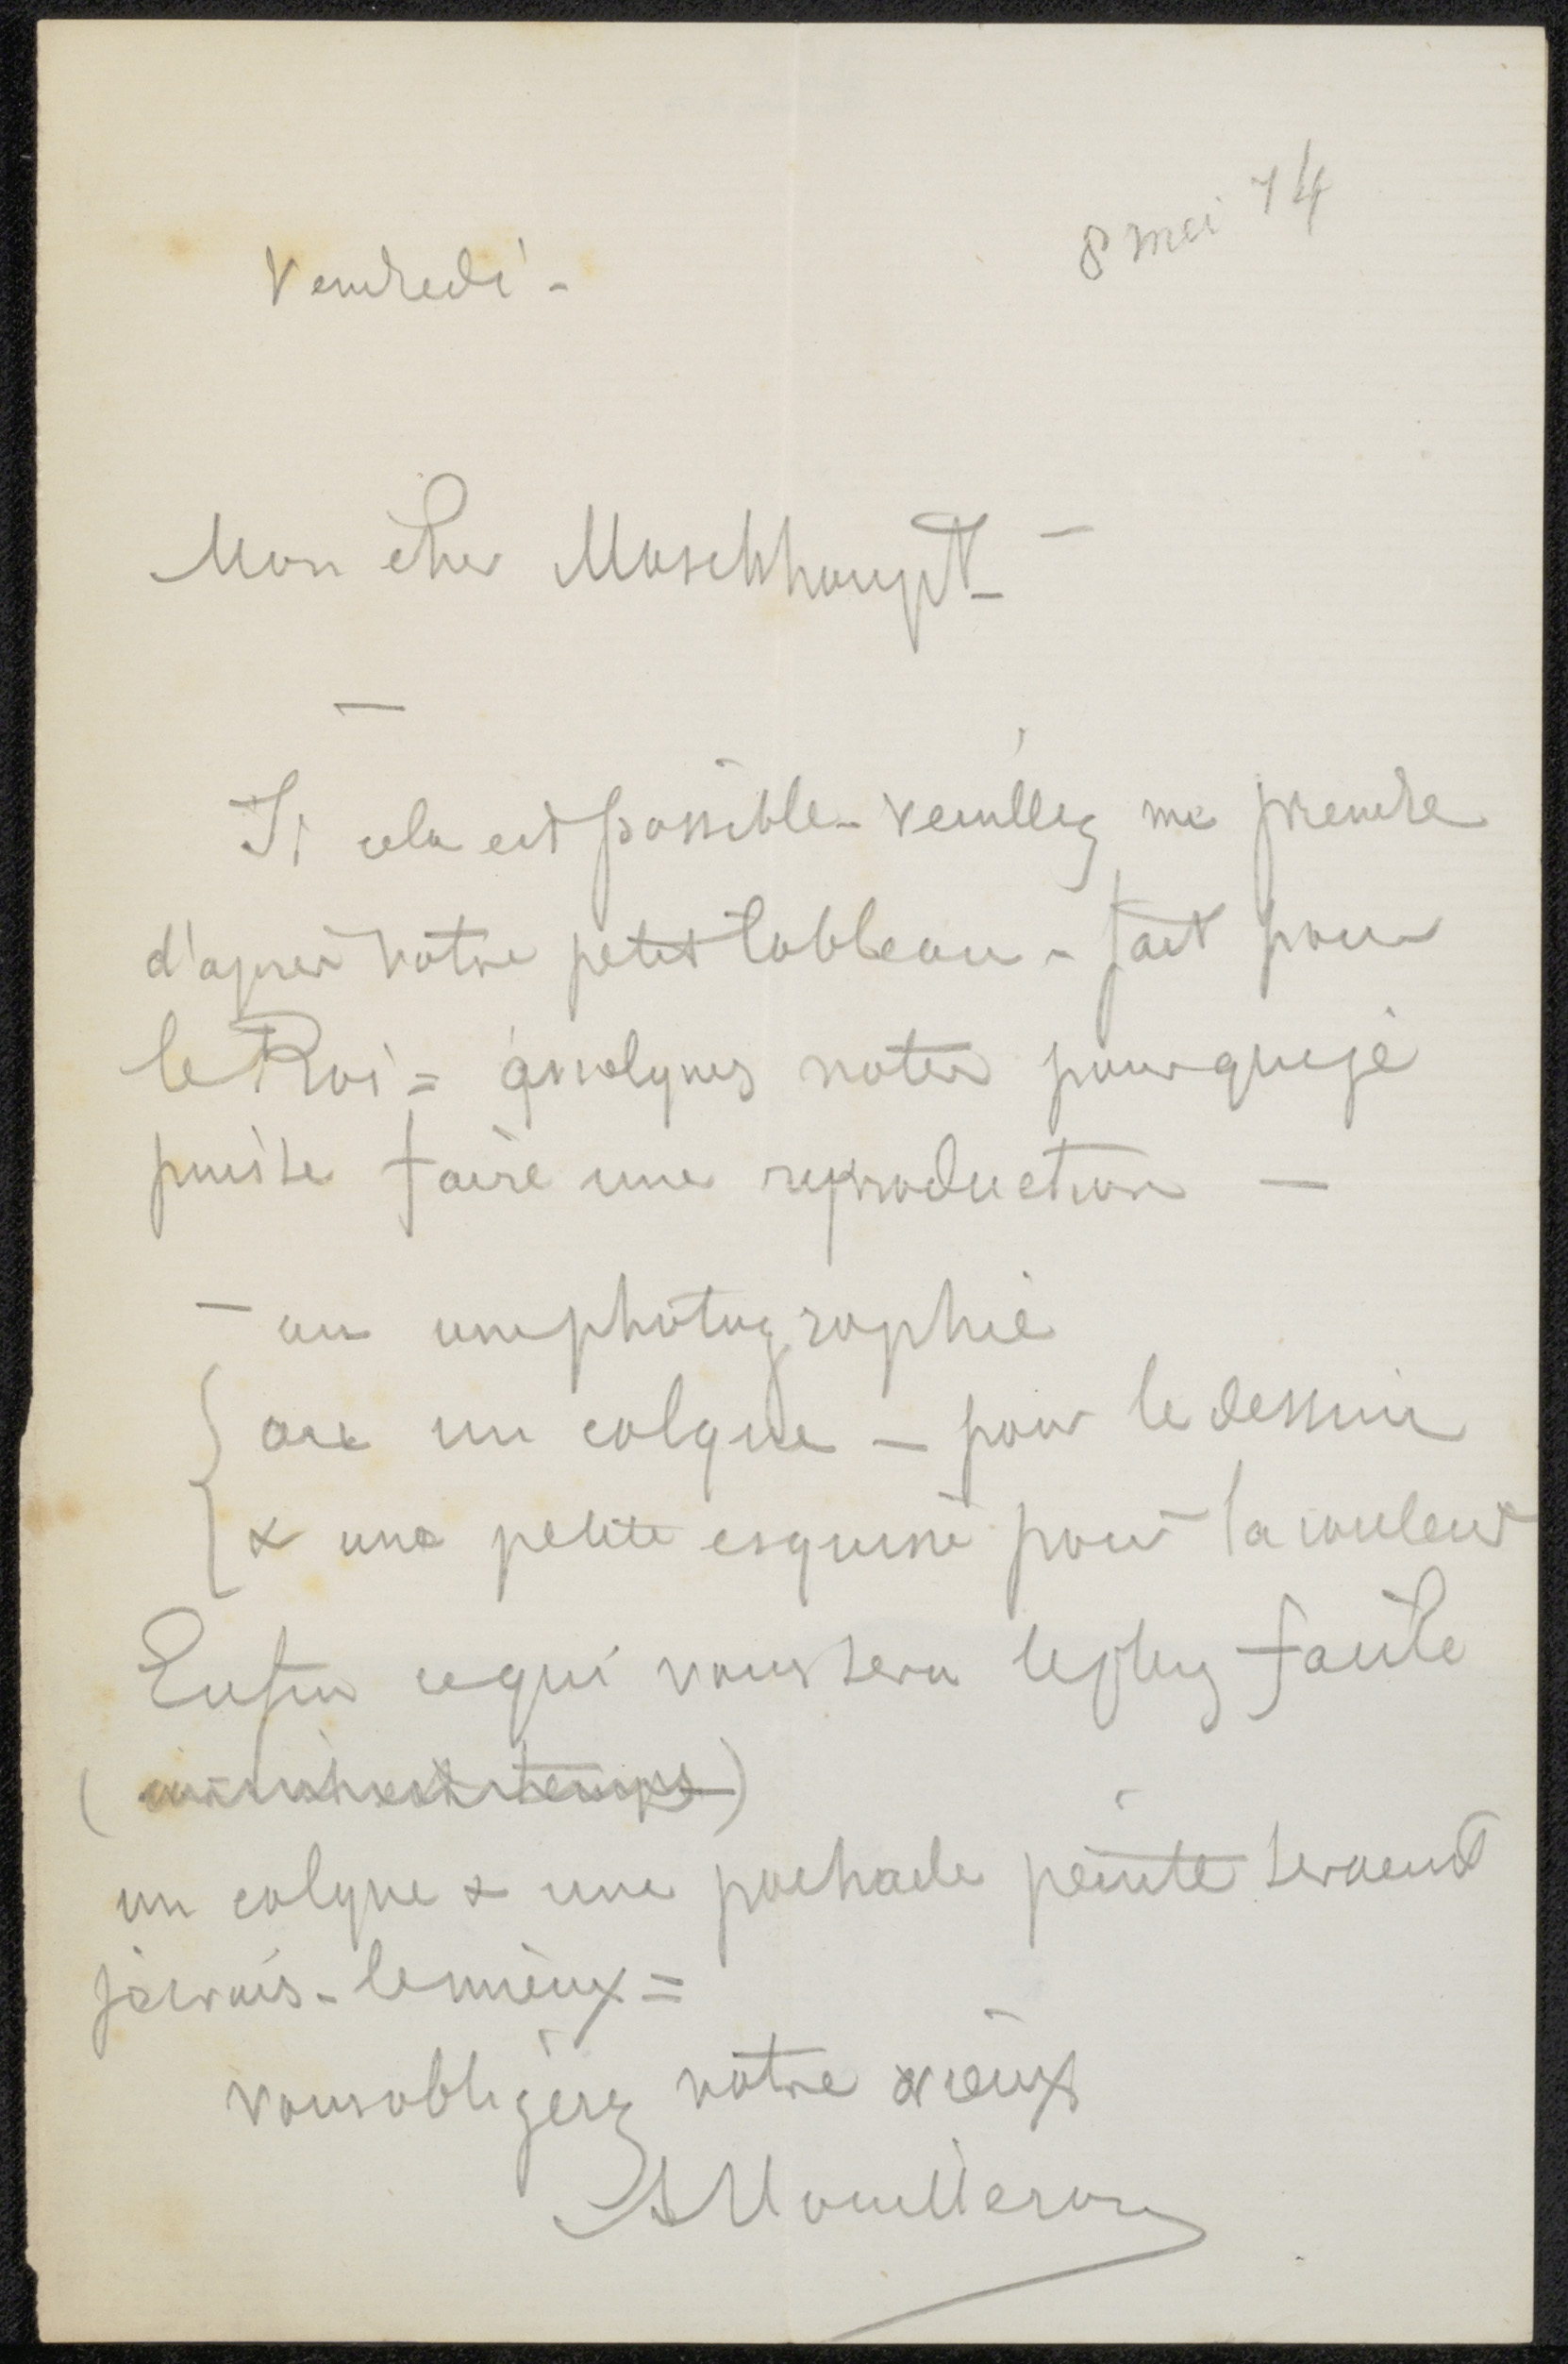 8 mei 74
Vendredi -
Mon cher Maschhaupt -
Si cela est possible - veuillez me prendre
d'après votre petit tableau - fait pour
le Roi = quelques notes pour que je
puisse faire une reproduction —
- ou une photographie
ou un calque — pour le dessin
& une petite esquisse pour la couleur
Enfin ce qui vous sera le plus facile
un calque & une pochade peinte seraient
je crois - le mieux =
vous obligerez votre vieux
A Mouilleron